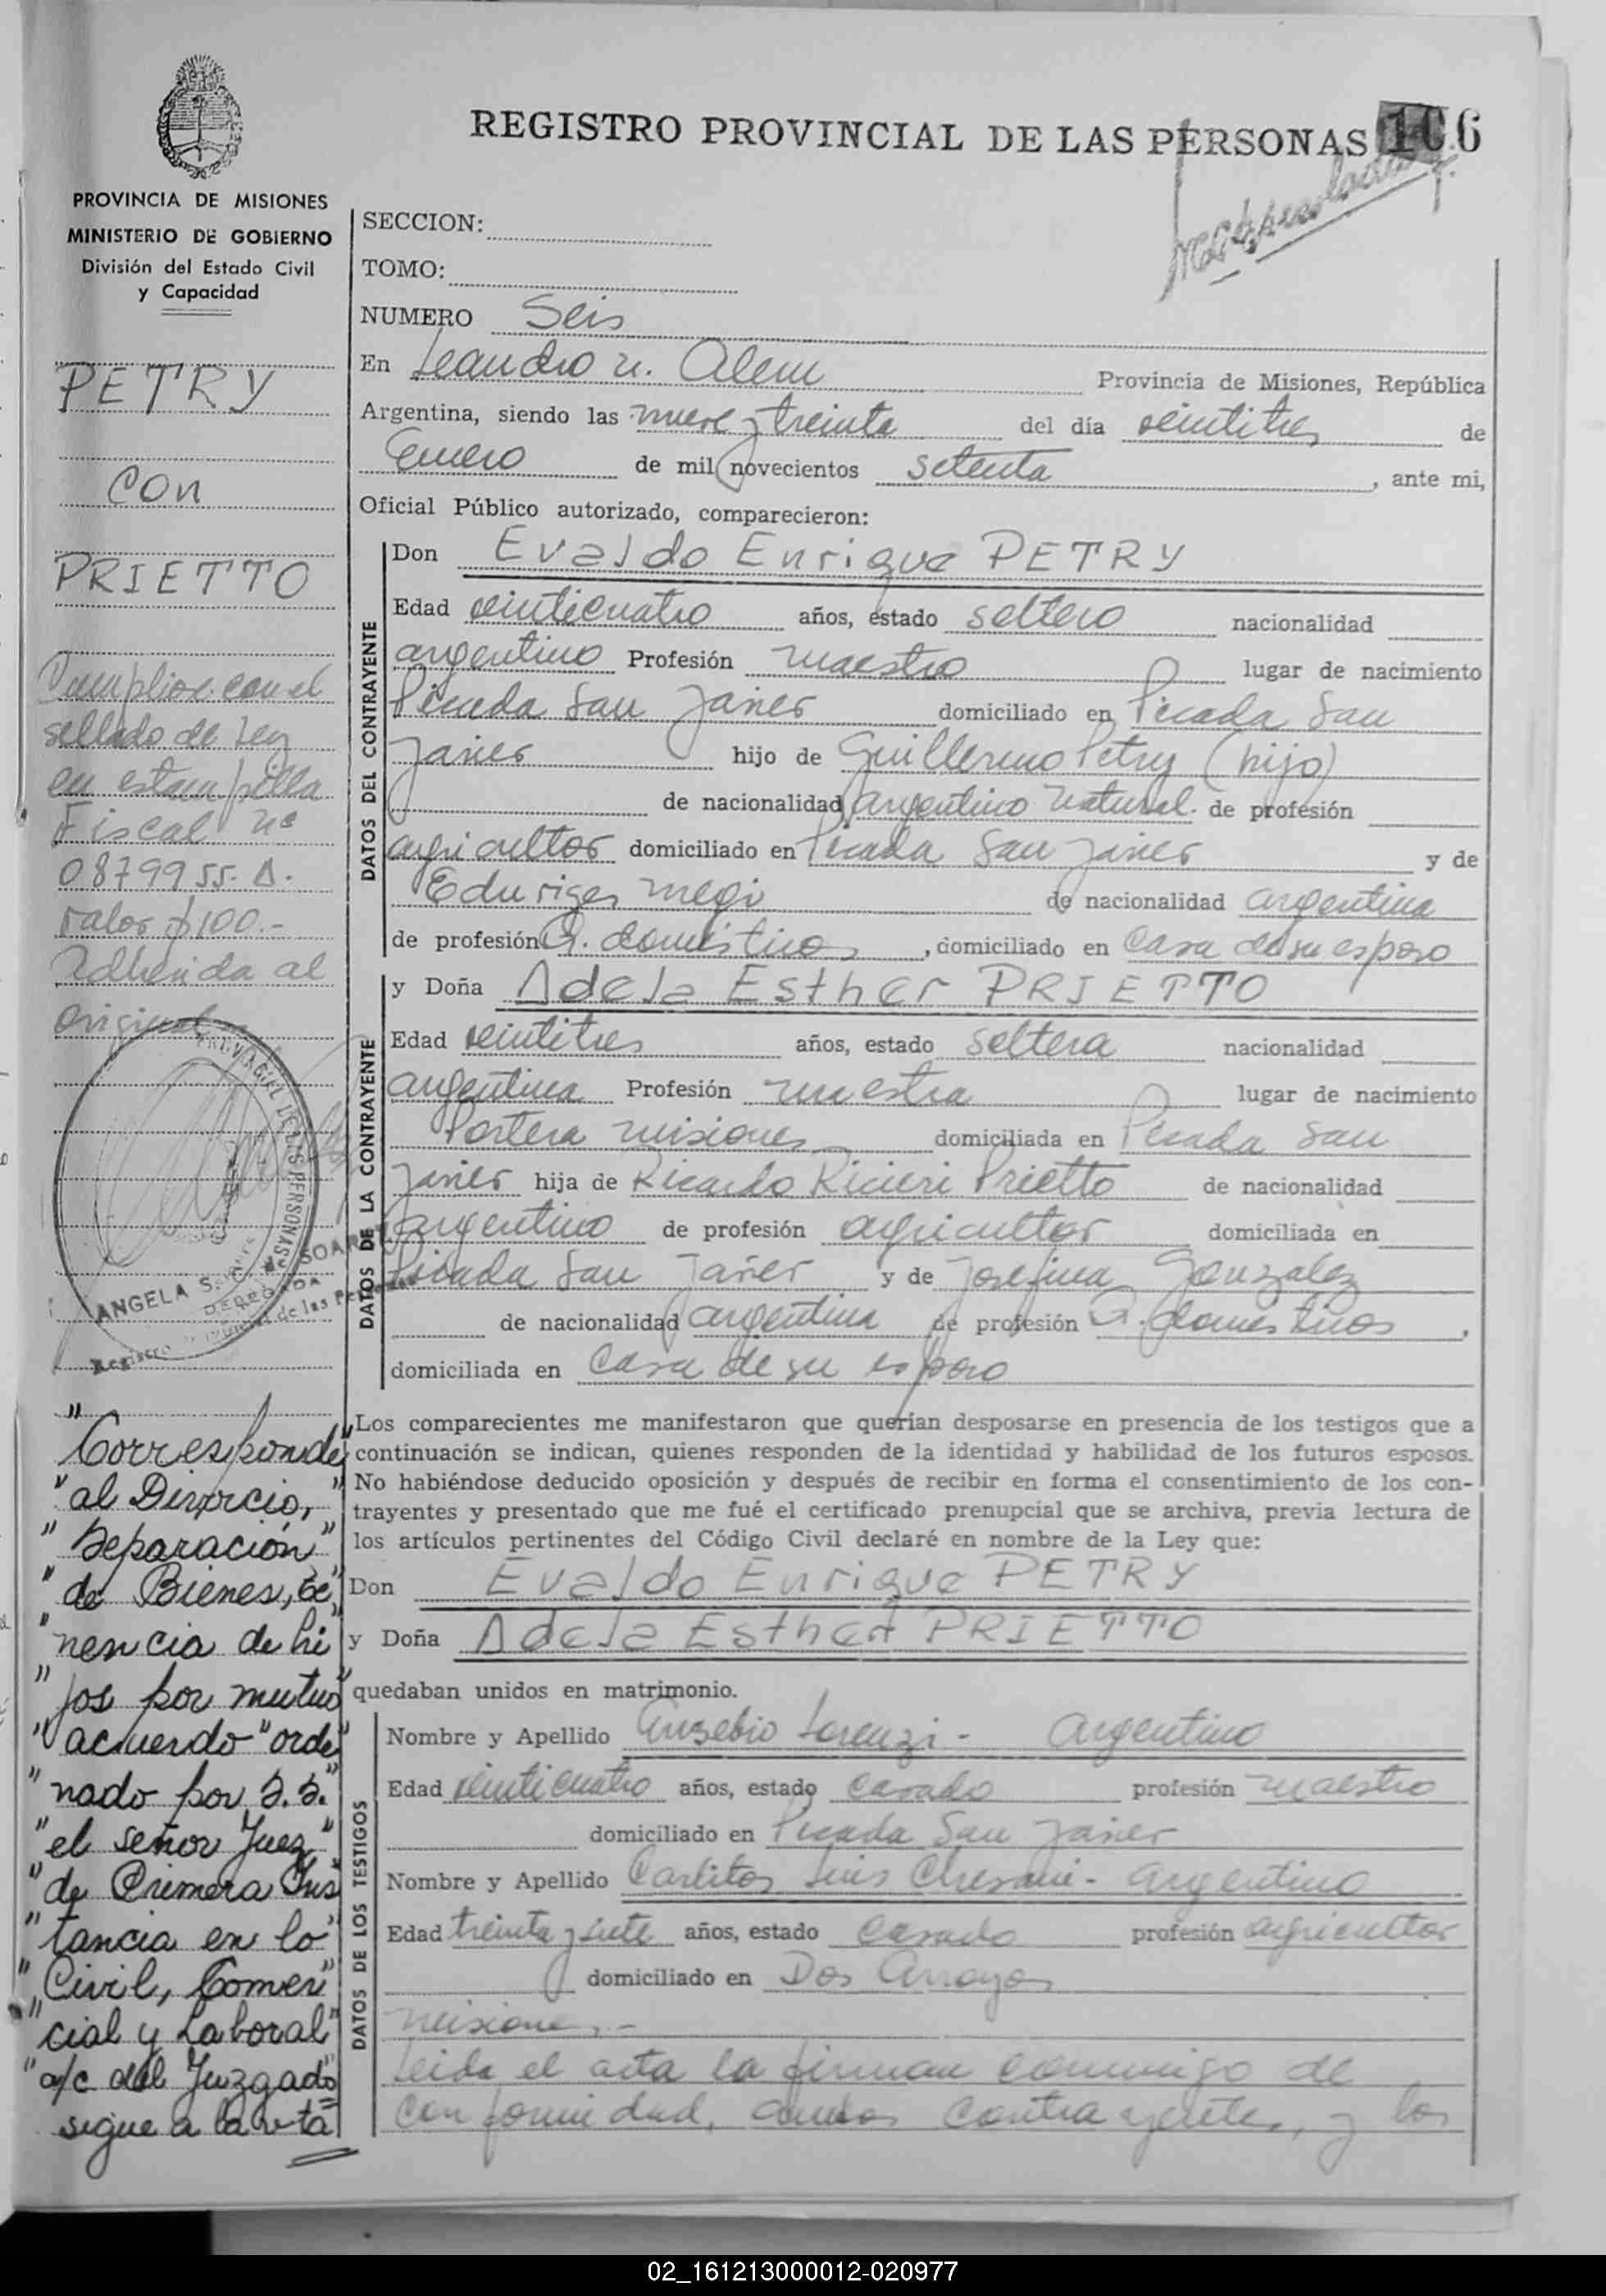 REGISTRO PROVINCIAL DE LAS PERSONAS 106
PROVINCIA DE MISIONES
MINISTERIO DE GOBIERNO
División del Estado Civil
y Capacidad
PETRY
con
PRIETTO
Cumpliose con el
sellado de Ley
en estampilla
Fiscal nº
0879955-A.
valor $100.-
adherida al
original
ANGELA S. de SOAR
"Corresponde"
"al Divorcio,"
"Separación"
"de Bienes, te"
"nencia de hi"
"jos por mutuo"
"acuerdo" orde"
"nado por S.S."
"el señor Juez"
"de Primera Ins"
"tancia en lo"
"Civil, Comer"
"cial y Laboral"
"a/c del Juzgado"
sigue a la vta
SECCION:
TOMO:
NUMERO Seis
En Leandro N. Alem Provincia de Misiones, República
Argentina, siendo las nueve y treinta del día veintitres de
Enero de mil novecientos setenta, ante mi,
Oficial Público autorizado, comparecieron:
DATOS DEL CONTRAYENTE
Don Evaldo Enrique PETRY
Edad veinticuatro años, estado soltero nacionalidad
argentino Profesión maestro lugar de nacimiento
Picada San Javier domiciliado en Picada San
Javier hijo de Guillermo Petry (hijo)
de nacionalidad argentino natural. de profesión
agricultor domiciliado en Picada San Javier y de
Eduviges de nacionalidad argentina
de profesión Q. domésticos, domiciliado en Casa de su esposo
DATOS DE LA CONTRAYENTE
y Doña Adela Esther PRIETTO
Edad veintitres años, estado soltera nacionalidad
argentina Profesión maestra lugar de nacimiento
misiones domiciliada en Picada San
Javier hija de Ricardo Ricieri Prietto de nacionalidad
argentino de profesión agricultor domiciliada en
Picada San Javier y de Josefina Gonzalez
de nacionalidad argentina de profesión Q. domesticos,
domiciliada en Casa de su esposo
Los comparecientes me manifestaron que querían desposarse en presencia de los testigos que a
continuación se indican, quienes responden de la identidad y habilidad de los futuros esposos.
No habiéndose deducido oposición y después de recibir en forma el consentimiento de los con-
trayentes y presentado que me fué el certificado prenupcial que se archiva, previa lectura de
los artículos pertinentes del Código Civil declaré en nombre de la Ley que:
Don Evaldo Enrique PETRY
y Doña Adela Esther PRIETTO
quedaban unidos en matrimonio.
DATOS DE LOS TESTIGOS
Nombre y Apellido Eusebio Lorenzi - Argentino
Edad veinticuatro años, estado casado profesión maestro
domiciliado en Picada San Javier
Nombre y Apellido Carlitos Luis - argentino
Edad treinta y siete años, estado casado profesión agricultor
domiciliado en Dos Arroyos
misiones.-
Leida el acta la firman conmigo de
conformidad, ambos contrayentes, y los
02_161213000012-020977